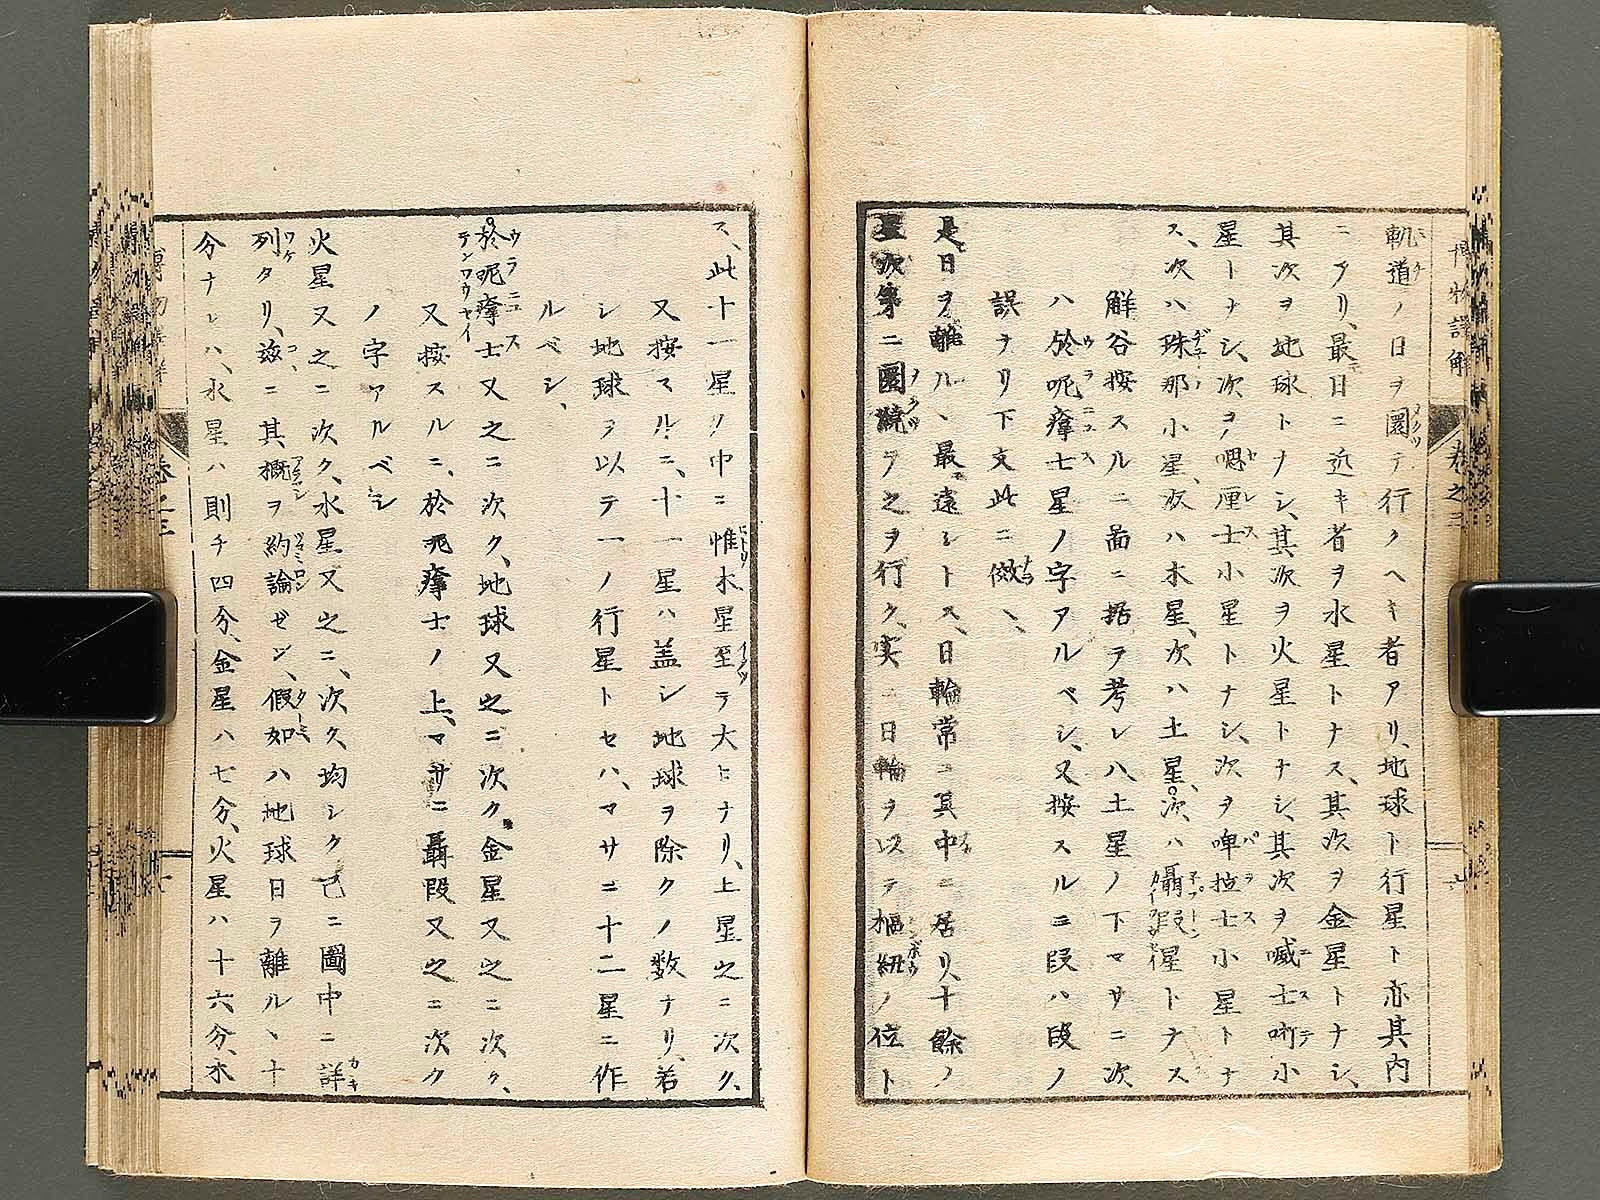 博物語解 巻之三 九
軌道ノ日ヲ圜テ行クヘキ者アリ、地球ト行星ト亦其内
ニアリ、最日ニ近キ者ヲ水星トナス、其次ヲ金星トナシ、
其次ヲ地球トナシ、其次ヲ火星トナシ、其次ヲ嘁士哳小
星トナシ、次ヲ嗯厘士小星トナシ、次ヲ啤拉士小星トナ
ス、次ハ珠那小星、次ハ木星、次ハ土星、次ハ聶段星トナス
解谷按スルニ畐ニ据ヲ考レハ、土星ノ下マサニ次
ハ於呢瘴士星ノ字アルベシ、又按スルニ段ハ段ノ
誤ナリ下文此ニ傚、
是、日ヲ離ル、最遠シトス、日輪常ニ其中ニ居リ、十餘ノ
星次第ニ圜繞ヲ之ヲ行ク、実ニ日輪ヲ以テ樞紐ノ位ト
ス、此十一星ノ中ニ惟木星至テ大ヒナリ、土星之ニ次ク、
又按スルニ、十一星ハ盖シ地球ヲ除クノ数ナリ、若
シ地球ヲ以テ一ノ行星トセハ、マサニ十二星ニ作
ルベシ、
於呢瘴士又之ニ次ク、地球又之ニ次ク、金星又之ニ次ク、
又按スルニ、於呢瘴士ノ上、マサニ聶段又之ニ次ク
ノ字アルベシ
火星又之ニ次ク、水星又之ニ、次ク、均シク已ニ圖中ニ詳
列タリ、茲ニ其概ヲ約論ゼン、假如ハ地球日ヲ離ル、十
分ナレハ、水星ハ則チ四分、金星ハ七分、火星ハ十六分、木
巻之三